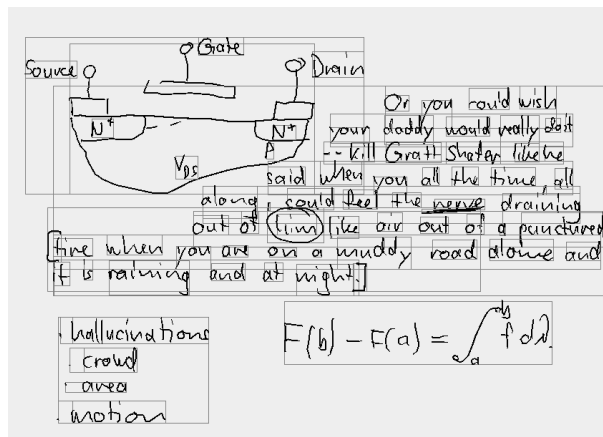 Gate
Source
Drain
N+
N+
P
V_DS
Or you could wish
your daddy would really do it
-- kill Grant Shafer like he
said when you all the time, all
along, could feel the nerve draining
out of him like air out of a punctured
[tire when you are on a muddy road alone and
it is raining and at night.]
. hallucinations
- crowd
- area
. motion
F(b) - F(a) = ∫_a^b f dλ.